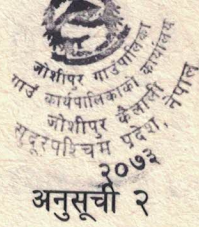 जोशीपुर गाउँपालिका
गाउँ कार्यपालिकाको कार्यालय
जोशीपुर कैलाली
सुदूरपश्चिम प्रदेश, नेपाल
२०७३
अनुसूची २